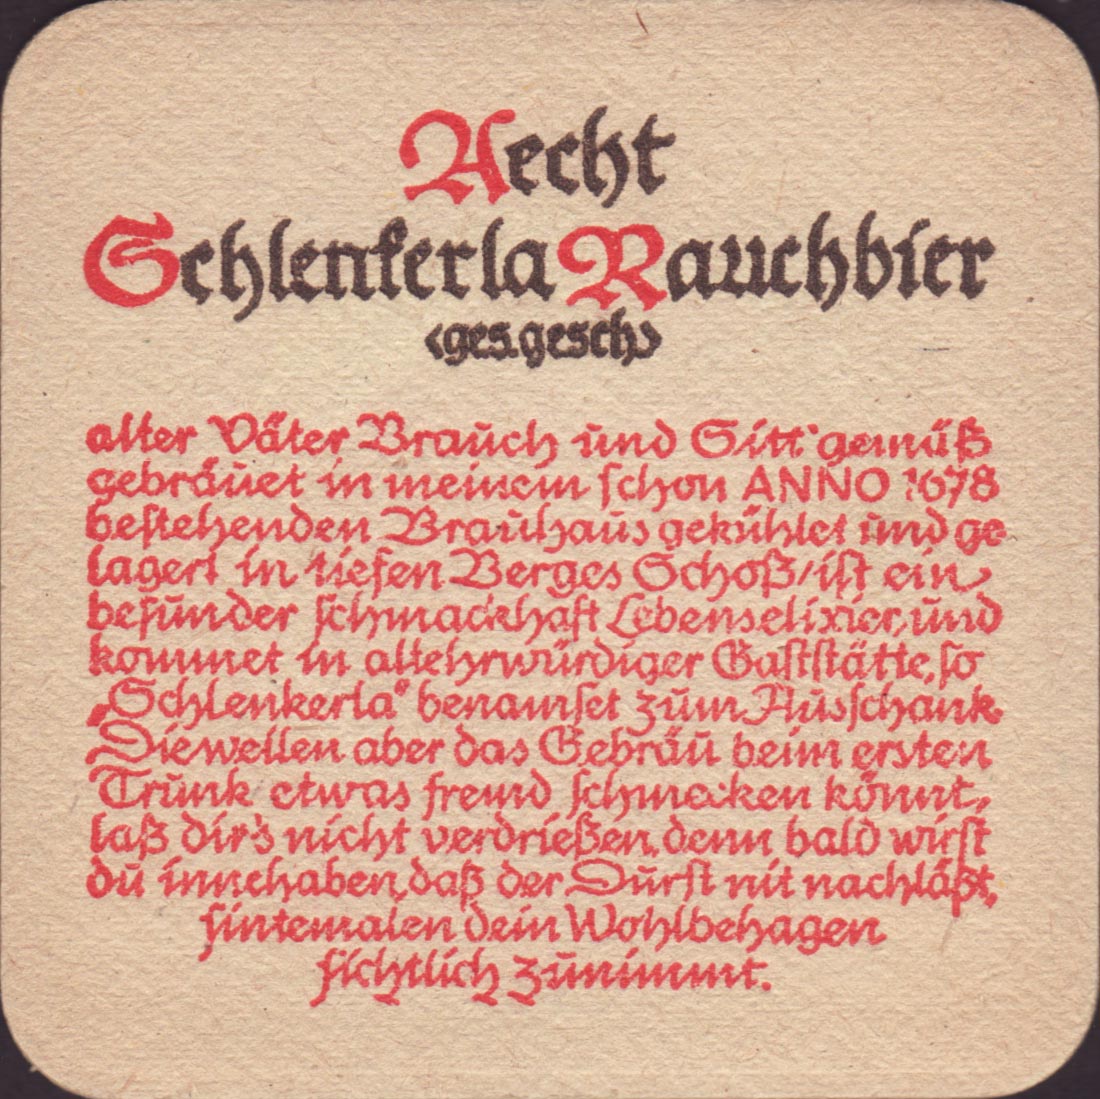 Aecht
Schlenkerla Rauchbier
<ges.gesch>
alter Väter Brauch und Sitt' gemäß
gebräuet in meinem schon ANNO 1678
bestehenden Brauhaus gekühlet und ge-
lagert in tiefen Berges Schoß/ist ein
besunder schmackhaft Lebenselixier, und
kommet in altehrwürdiger Gaststätte, so
„Schlenkerla“ benamset zum Ausschank.
Diewellen aber das Gebräu beim ersten
Trunk etwas fremd schmecken könnt,
laß dir's nicht verdrießen, denn bald wirst
du innehaben, daß der Durst nit nachläßt,
sintemalen dein Wohlbehagen
sichtlich zunimmt.